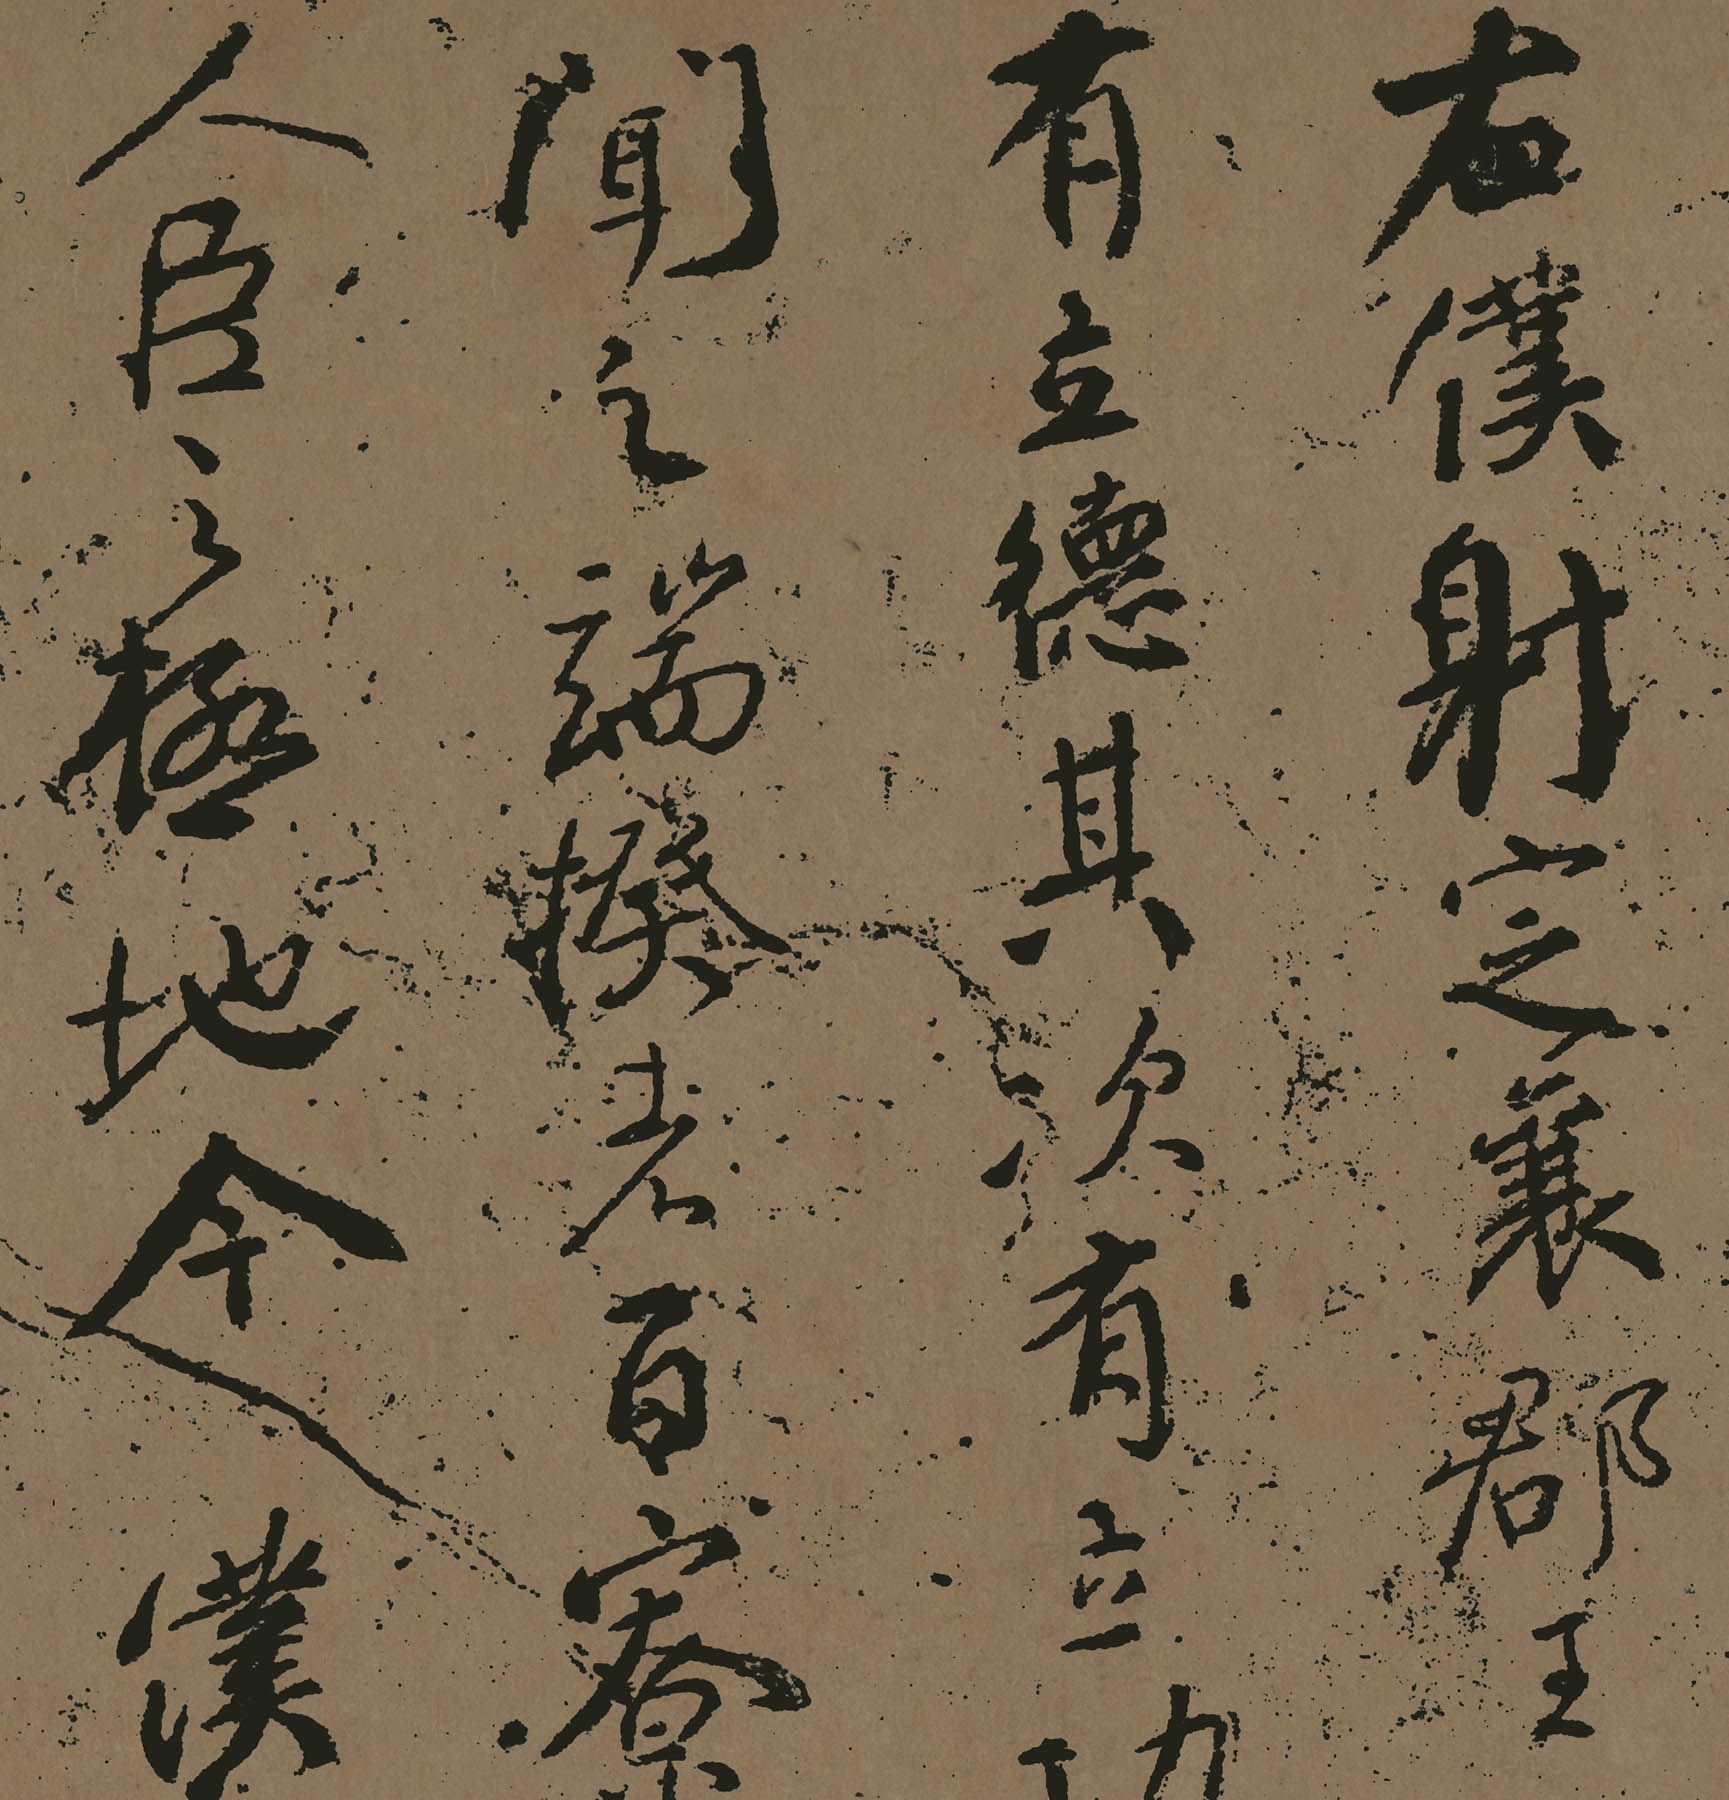 右僕射定襄郡王
有立德其次有立功
聞之端揆者百寮
人臣之極地今僕